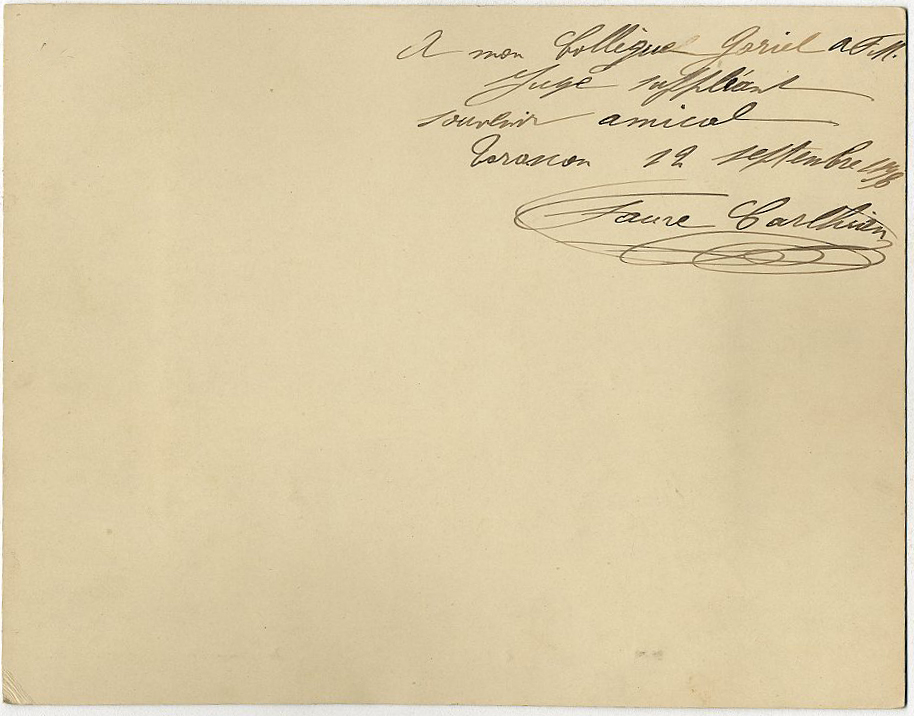 A mon Collègue Goriel
Juge suppléant
souvenir amical
Tarascon 12 septembre
Faure Carlhian